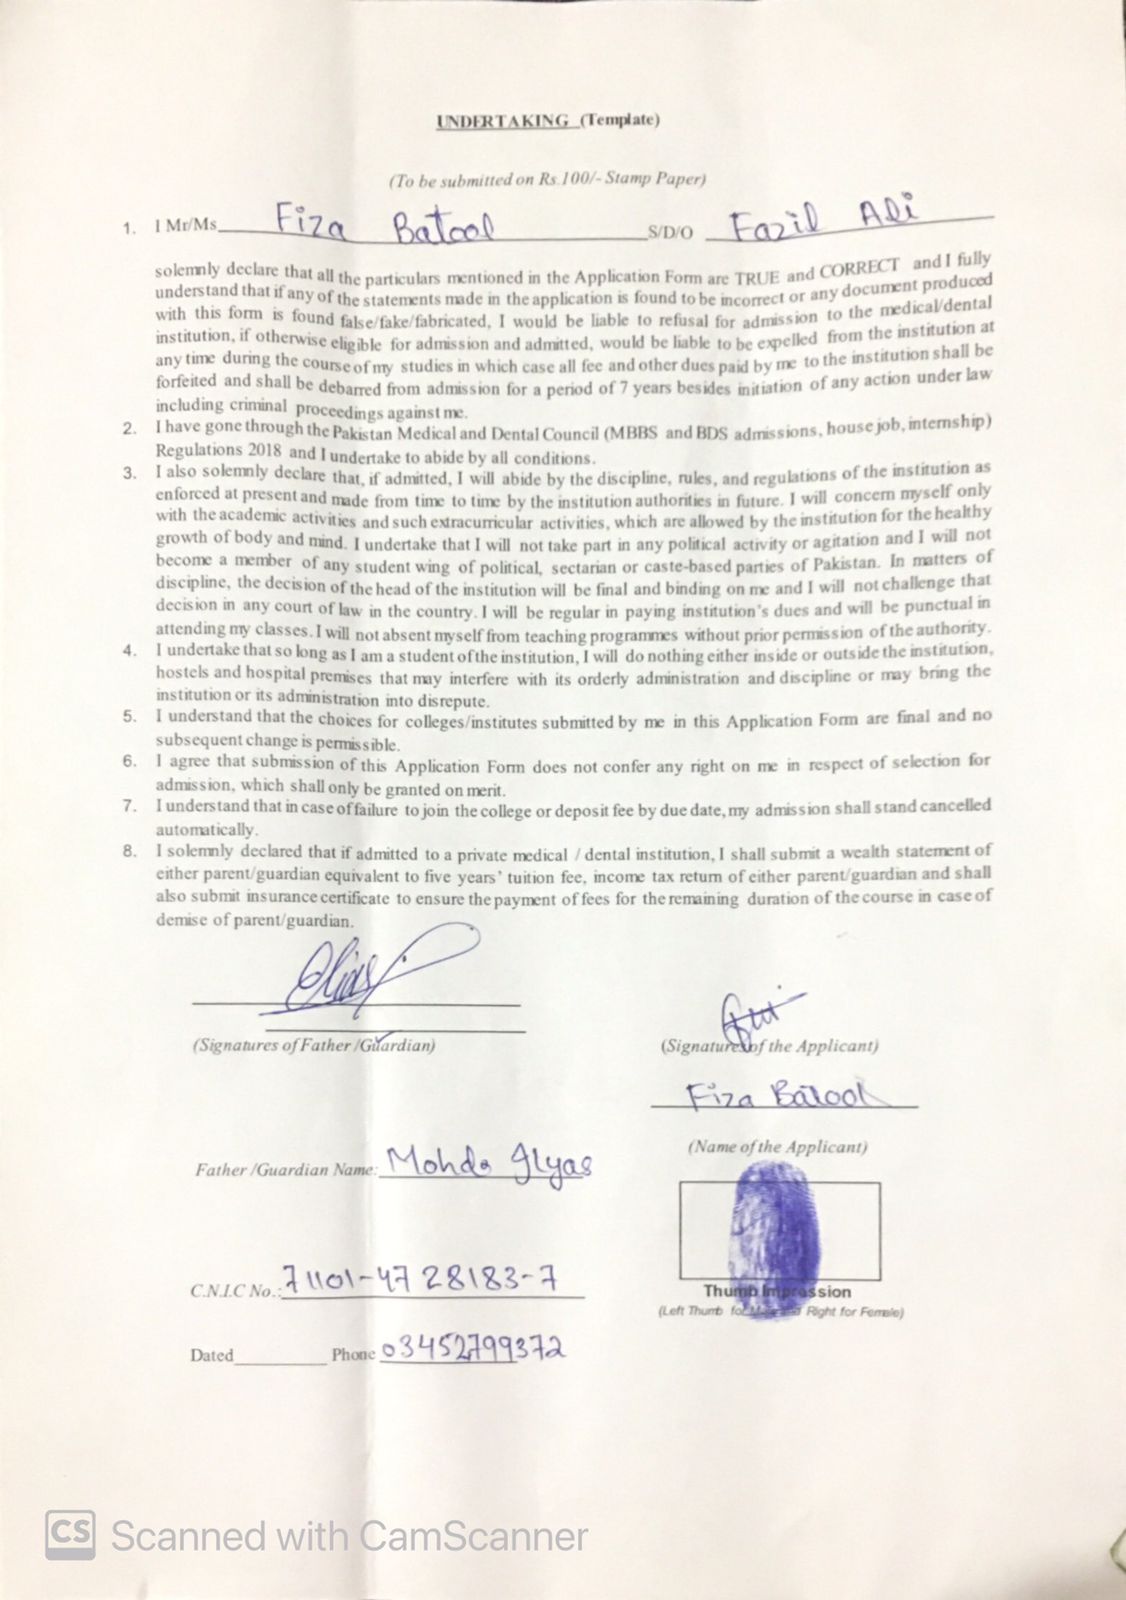 UNDERTAKING (Template)
(To be submitted on Rs.100/- Stamp Paper)
1. I Mr/Ms Fiza Batool S/D/O Fazil Ali
solemnly declare that all the particulars mentioned in the Application Form are TRUE and CORRECT and I fully
understand that if any of the statements made in the application is found to be incorrect or any document produced
with this form is found false/fake/fabricated, I would be liable to refusal for admission to the medical/dental
institution, if otherwise eligible for admission and admitted, would be liable to be expelled from the institution at
any time during the course of my studies in which case all fee and other dues paid by me to the institution shall be
forfeited and shall be debarred from admission for a period of 7 years besides initiation of any action under law
including criminal proceedings against me.
2. I have gone through the Pakistan Medical and Dental Council (MBBS and BDS admissions, house job, internship)
Regulations 2018 and I undertake to abide by all conditions.
3. I also solemnly declare that, if admitted, I will abide by the discipline, rules, and regulations of the institution as
enforced at present and made from time to time by the institution authorities in future. I will concern myself only
with the academic activities and such extracurricular activities, which are allowed by the institution for the healthy
growth of body and mind. I undertake that I will not take part in any political activity or agitation and I will not
become a member of any student wing of political, sectarian or caste-based parties of Pakistan. In matters of
discipline, the decision of the head of the institution will be final and binding on me and I will not challenge that
decision in any court of law in the country. I will be regular in paying institution's dues and will be punctual in
attending my classes. I will not absent myself from teaching programmes without prior permission of the authority.
4. I undertake that so long as I am a student of the institution, I will do nothing either inside or outside the institution,
hostels and hospital premises that may interfere with its orderly administration and discipline or may bring the
institution or its administration into disrepute.
5. I understand that the choices for colleges/institutes submitted by me in this Application Form are final and no
subsequent change is permissible.
6. I agree that submission of this Application Form does not confer any right on me in respect of selection for
admission, which shall only be granted on merit.
7. I understand that in case of failure to join the college or deposit fee by due date, my admission shall stand cancelled
automatically.
8. I solemnly declared that if admitted to a private medical / dental institution, I shall submit a wealth statement of
either parent/guardian equivalent to five years' tuition fee, income tax return of either parent/guardian and shall
also submit insurance certificate to ensure the payment of fees for the remaining duration of the course in case of
demise of parent/guardian.
(Signatures of Father /Guardian)
(Signatures of the Applicant)
Fiza Batool
(Name of the Applicant)
Father /Guardian Name: Mohd. Ilyas
Thumb Impression
(Left Thumb for Male and Right for Female)
C.N.I.C No.: 71101-4728183-7
Dated Phone 03452799372
CS Scanned with CamScanner